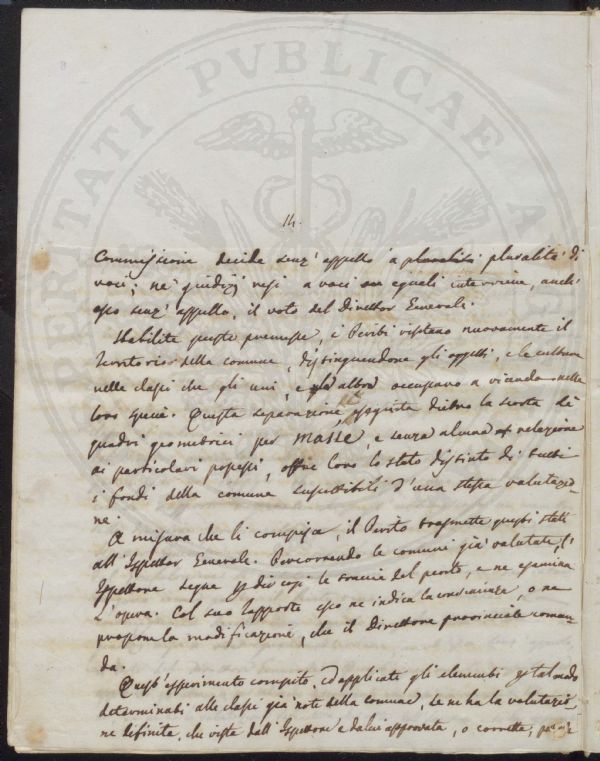 14.
Commissione decide senz' appello a pluralità pluralità di
voci; ne' giudizj resi a voci eguali interviene, anch'
esso senz' appello, il voto del Direttor Generale.
Stabilite queste premesse, i Periti visitano nuovamente il
territorio della comune, distinguendone gli oggetti, e le culture
nelle classi che gli uni, e gli altri occupano a vicenda nelle
loro specie. Questa separazione, eseguita dietro la scorta de'
quadri geometrici per masse, e senza alcuna relazione
ai particolari possessi, offre loro lo stato distinto di tutti
i fondi della comune suscettibili d'una stessa valutazio-
ne.
A misura che li compisce, il Perito trasmette questi stati
all' Ispettor Generale. Percorrendo le comuni già valutate, l'
Ispettore segue le traccie del perito, e ne esamina
l'opera. Col suo rapporto esso ne indica la convenienza, o ne
propone la modificazione, che il Direttore provinciale coman-
da.
Quest' esperimento compito, ed applicati gli elementi
determinati alle classi già note della comune, se ne ha la valutazio-
ne definita, che vista dall' Ispettore e da lui approvata, o corretta,
VERITATI PVBLICAE